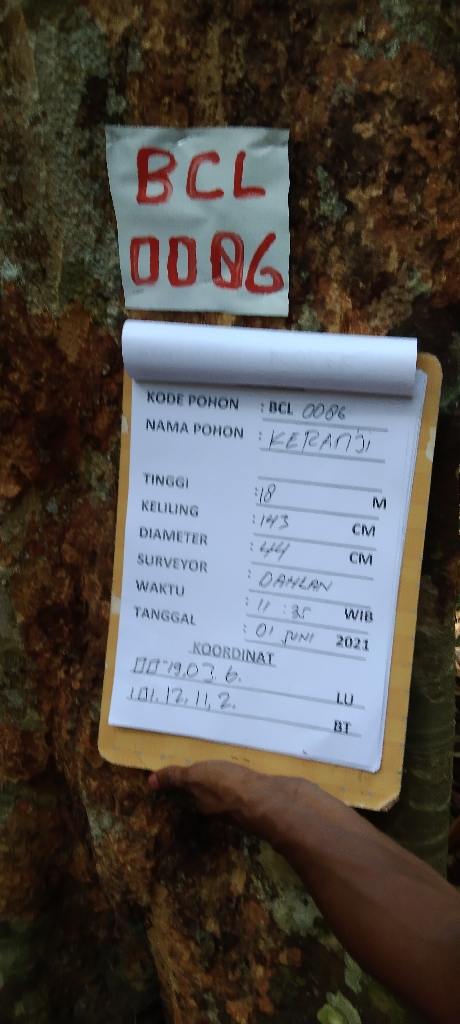 BCL
0086
KODE POHON : BCL 0086
NAMA POHON : KERANJI
TINGGI : 18 M
KELILING : 143 CM
DIAMETER : 44 CM
SURVEYOR : DAHLAN
WAKTU : 11 : 35 WIB
TANGGAL : 01 JUNI 2021
KOORDINAT
00 19,03, 6. LU
101. 12, 11, 2. BT